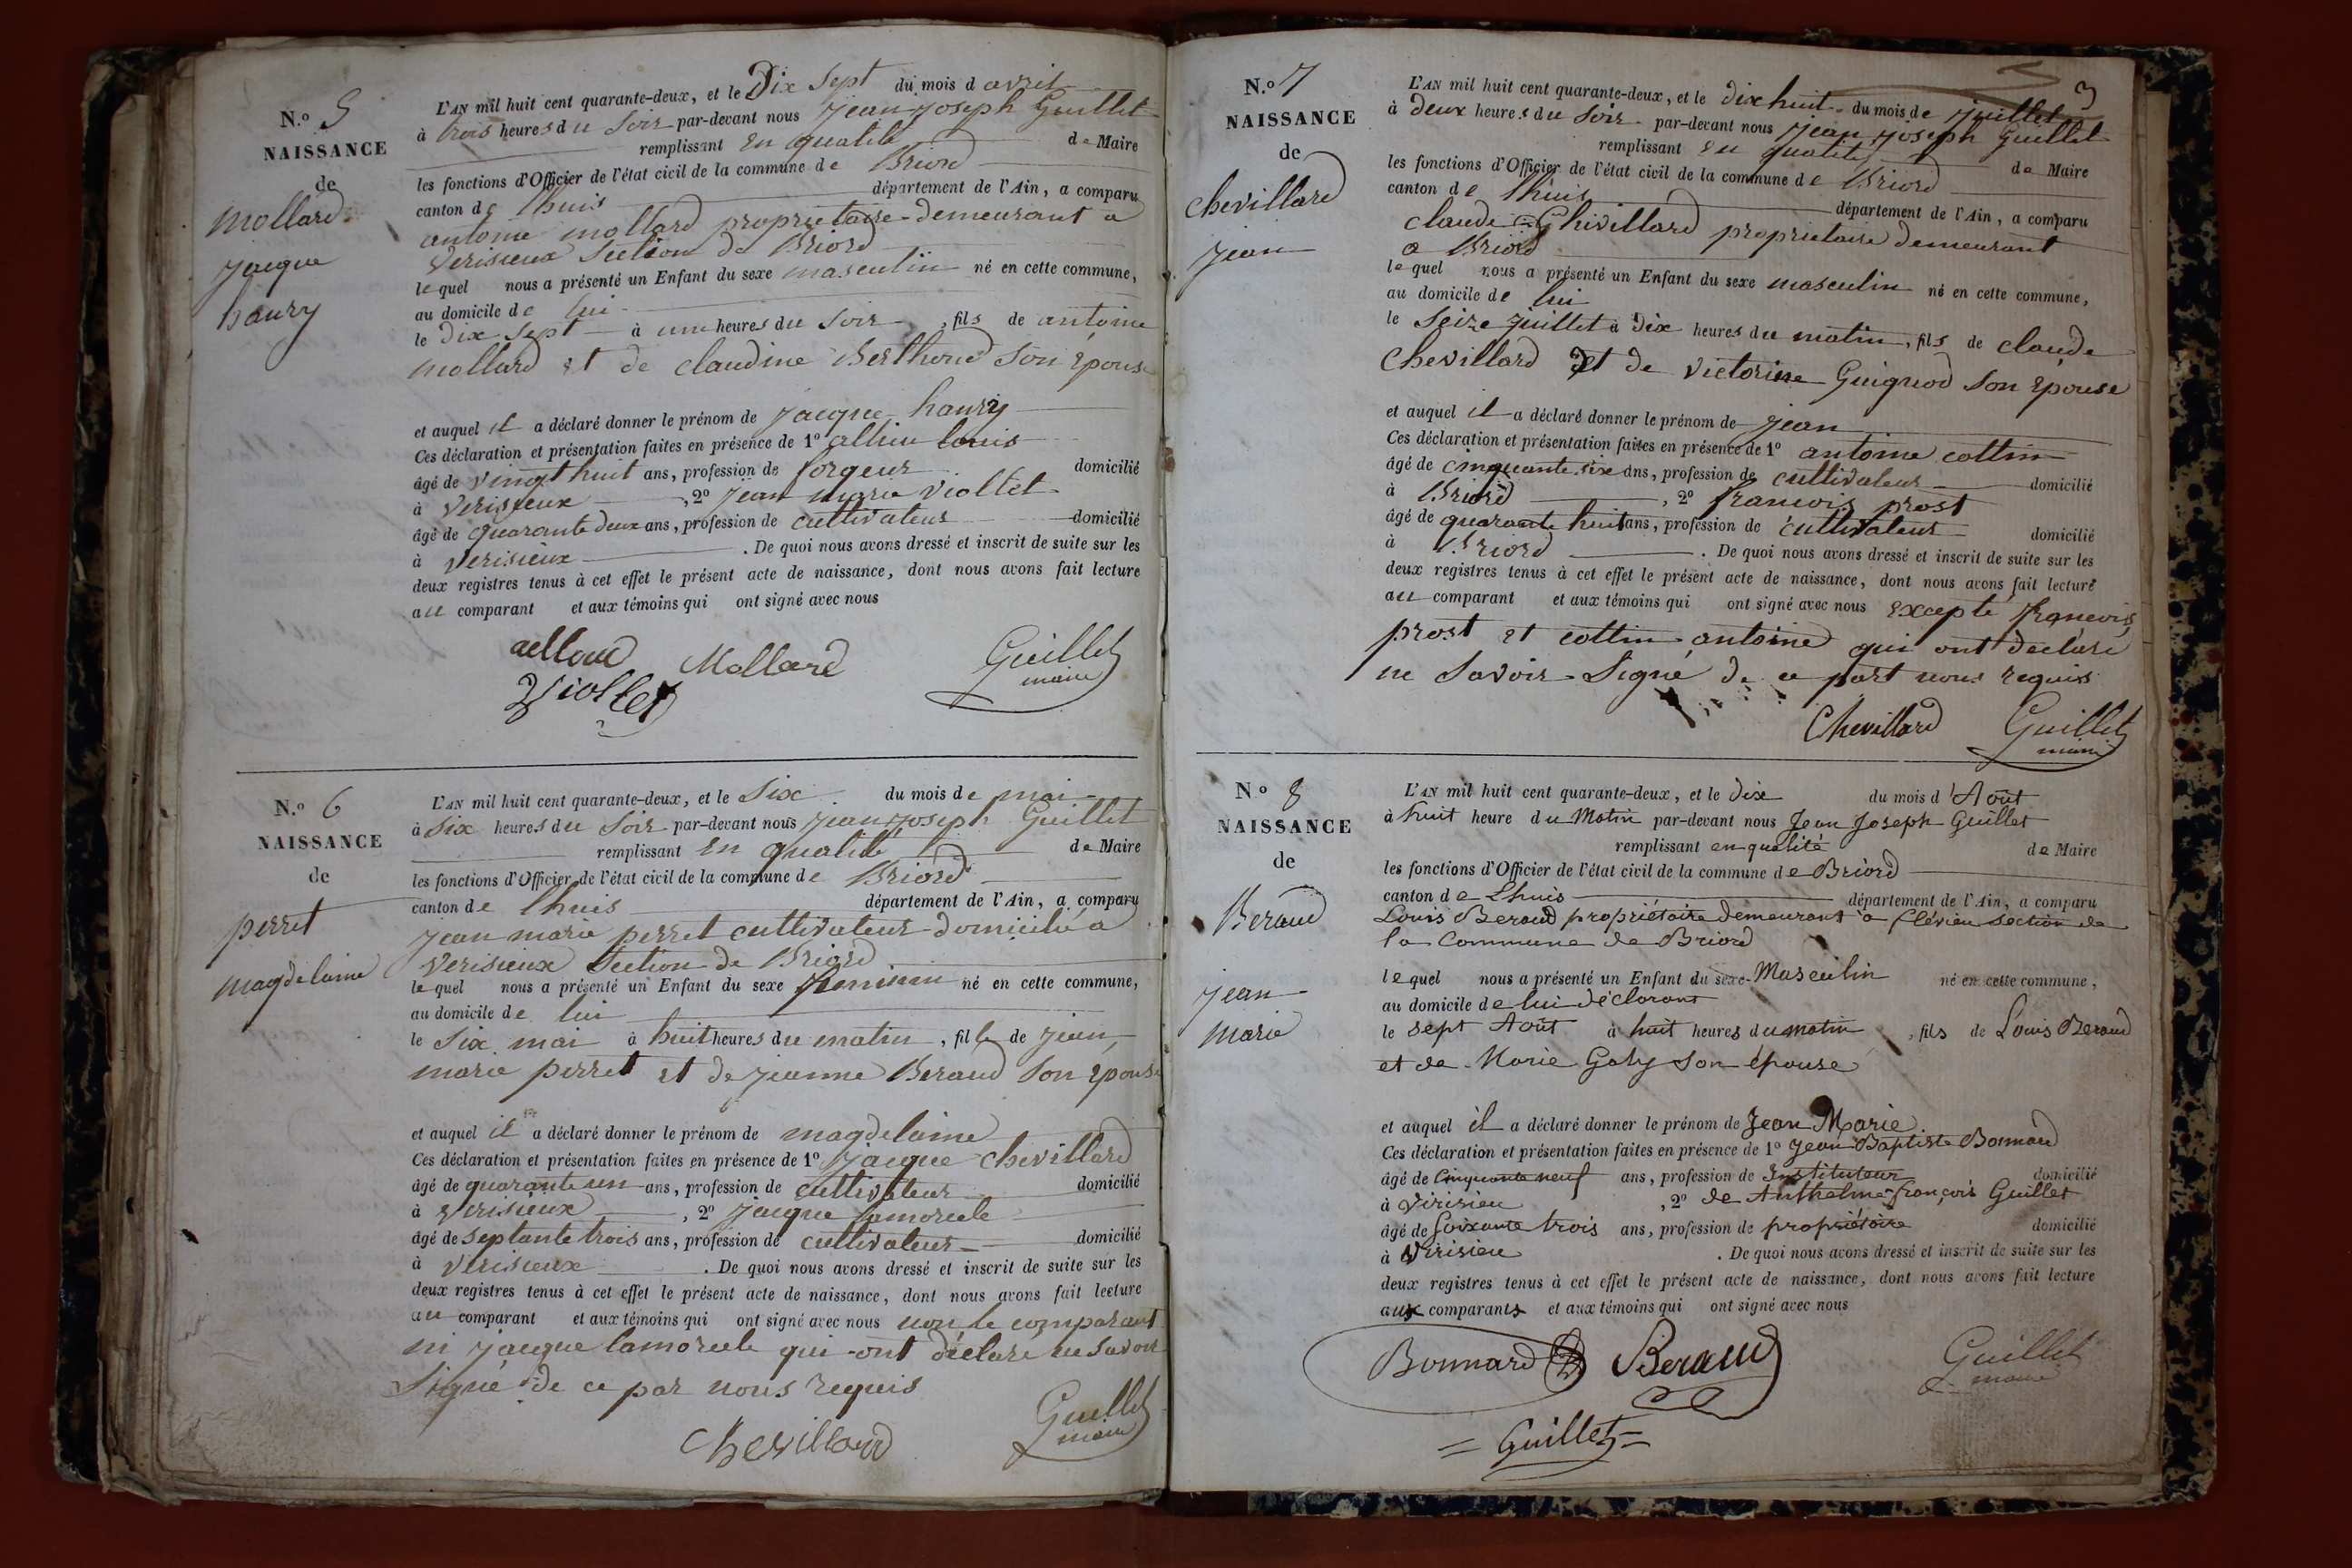 N.o 5
NAISSANCE
de
mollard
jacque
hanry
L'AN mil huit cent quarante-deux, et le Dix sept du mois d avril
à trois heures du soir par-devant nous jean joseph Guillet
remplissant en qualité de Maire
les fonctions d'Officier de l'état civil de la commune de Briord
canton de lhuis département de l'Ain, a comparu
antoine mollard propriétaire demeurant a
verisieux section de Briord
lequel nous a présenté un Enfant du sexe masculin né en cette commune,
au domicile de lui
le dix sept à une heures du soir, fils de antoine
mollard et de claudine Berthoud son épouse
et auquel il a déclaré donner le prénom de jacque hanry
Ces déclaration et présentation faites en présence de 1o louis
âgé de vingt huit ans, profession de forgeur domicilié
à verisieux, 2o jean marie violtet
âgé de quarante deux ans, profession de cultivateur domicilié
à verisieux. De quoi nous avons dressé et inscrit de suite sur les
deux registres tenus à cet effet le présent acte de naissance, dont nous avons fait lecture
au comparant et aux témoins qui ont signé avec nous
Mollard Guillet
maire
Viollet
N.o 6
NAISSANCE
de
perret
magdelaine
L'AN mil huit cent quarante-deux, et le six du mois de mai
à six heures du soir par-devant nous jean joseph Guillet
remplissant en qualité de Maire
les fonctions d'Officier de l'état civil de la commune de Briord
canton de lhuis département de l'Ain, a comparu
jean marie perret cultivateur domicilié a
verisieux section de Briord
lequel nous a présenté un Enfant du sexe feminin né en cette commune,
au domicile de lui
le six mai à huit heures du matin, fille de jean
marie perret et de jeanne Beraud son épouse
et auquel il a déclaré donner le prénom de magdelaine
Ces déclaration et présentation faites en présence de 1o jacque chevillard
âgé de quarante un ans, profession de cultivateur domicilié
à verisieux, 2o jacque lamorcele
âgé de septante trois ans, profession de cultivateur domicilié
à verisieux. De quoi nous avons dressé et inscrit de suite sur les
deux registres tenus à cet effet le présent acte de naissance, dont nous avons fait lecture
au comparant et aux témoins qui ont signé avec nous non le comparant
ni jacque lamorcele qui ont déclaré ne savoir
signé de ce par nous requis
Chevillard Guillet
maire
3
N.o 7
NAISSANCE
de
chevillard
jean
L'AN mil huit cent quarante-deux, et le dix huit du mois de juillet
à deux heures du soir par-devant nous jean joseph Guillet
remplissant en qualité de Maire
les fonctions d'Officier de l'état civil de la commune de Briord
canton de lhuis département de l'Ain, a comparu
claude Chivillard propriétaire demeurant
a Briord
lequel nous a présenté un Enfant du sexe masculin né en cette commune,
au domicile de lui
le seize juillet à dix heures du matin, fils de claude
chevillard et de victorine Guignod son épouse
et auquel il a déclaré donner le prénom de jean
Ces déclaration et présentation faites en présence de 1o antoine cottin
âgé de cinquante six ans, profession de cultivateur domicilié
à Briord, 2o francois prost
âgé de quarante huit ans, profession de cultivateur domicilié
à Briord. De quoi nous avons dressé et inscrit de suite sur les
deux registres tenus à cet effet le présent acte de naissance, dont nous avons fait lecture
au comparant et aux témoins qui ont signé avec nous excepté francois
prost et cottin antoine qui ont déclaré
ne savoir signé de ce part nous requis
Chevillard Guillet
maire
No 8
NAISSANCE
de
Beraud
jean
marie
L'AN mil huit cent quarante-deux, et le dix du mois d'Août
à huit heure du Matin par-devant nous Jean Joseph Guillet
remplissant en qualité de Maire
les fonctions d'Officier de l'état civil de la commune de Briord
canton de Lhuis département de l'Ain, a comparu
Louis Beraud propriétaire demeurant à flévieu section de
la Commune de Briord
lequel nous a présenté un Enfant du sexe Masculin né en cette commune,
au domicile de lui déclarant
le sept Août à huit heures du matin, fils de Louis Beraud
et de Marie Galy son épouse
et auquel il a déclaré donner le prénom de Jean Marie
Ces déclaration et présentation faites en présence de 1o Jean Baptiste Bonnard
âgé de cinquante neuf ans, profession de Instituteur domicilié
à virisieu, 2o de Anthelme françois Guillet
âgé de soixante trois ans, profession de propriétaire domicilié
à virisieu. De quoi nous avons dressé et inscrit de suite sur les
deux registres tenus à cet effet le présent acte de naissance, dont nous avons fait lecture
aux comparants et aux témoins qui ont signé avec nous
Bonnard Beraud Guillet
maire
Guillet